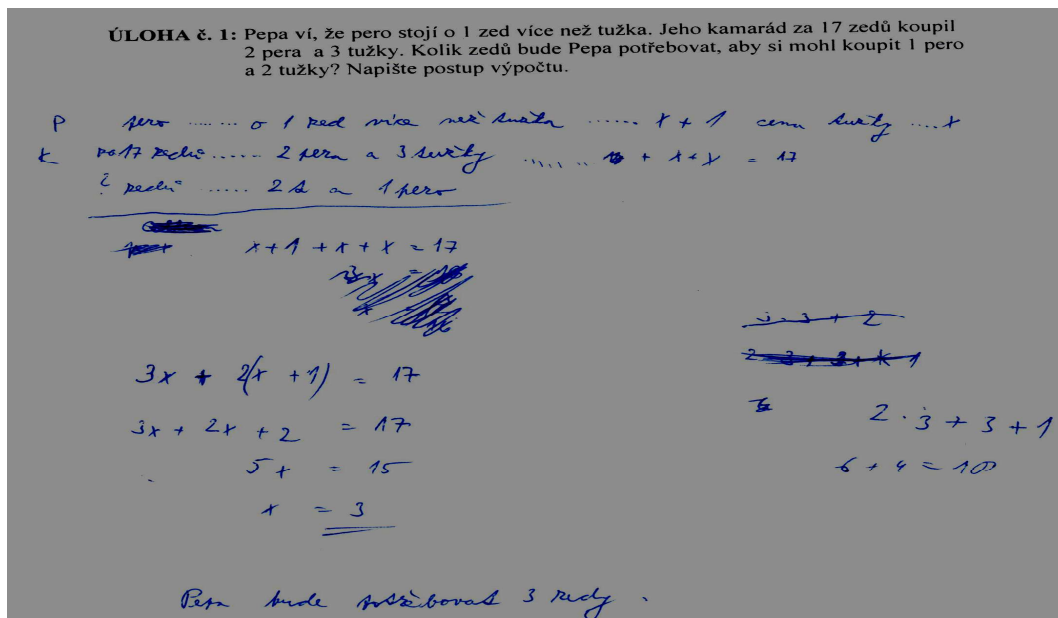 ÚLOHA č. 1: Pepa ví, že pero stojí o 1 zed více než tužka. Jeho kamarád za 17 zedů koupil
2 pera a 3 tužky. Kolik zedů bude Pepa potřebovat, aby si mohl koupit 1 pero
a 2 tužky? Napište postup výpočtu.
P pero ........ o 1 zed více než tužka ...... x + 1 cena tužky .... x
K za 17 zedů ...... 2 pera a 3 tužky ....... + x + x = 17
? zedů ...... 2 t a 1 pero
x + 1 + x + x = 17
3x + 2(x + 1) = 17
3x + 2x + 2 = 17
5x = 15
x = 3
3 + 2
2 · 3 + 3 + 1
6 + 4 = 10
Pepa bude potřebovat 3 zedy.